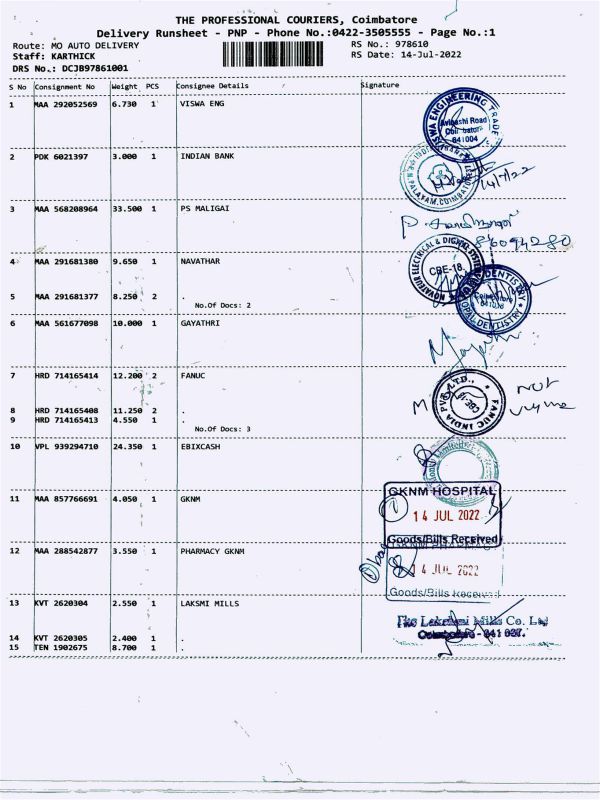 THE PROFESSIONAL COURIERS, Coimbatore
Delivery Runsheet - PNP - Phone No.:0422-3505555 - Page No.:1
Route: MO AUTO DELIVERY RS No.: 978610
Staff: KARTHICK RS Date: 14-Jul-2022
DRS No.: DCJB97861001
S No Consignment No Weight PCS Consignee Details Signature
1 MAA 292052569 6.730 1 VISWA ENG
VISWA ENGINEERING TRADE
Avinashi Road
Coimbatore
641004
2 PDK 6021397 3.000 1 INDIAN BANK
14/7/22
3 MAA 568208964 33.500 1 PS MALIGAI
4 MAA 291681380 9.650 1 NAVATHAR
ELECTRICAL & DIGITAL SYSTEM
CBE-18
5 MAA 291681377 8.250 2 .
No.Of Docs: 2
DENTISTRY
Coimbatore
6 MAA 561677098 10.000 1 GAYATHRI
7 HRD 714165414 12.200 2 FANUC
FANUC INDIA PVT. LTD.,
8 HRD 714165408 11.250 2 .
9 HRD 714165413 4.550 1 .
No.Of Docs: 3
10 VPL 939294710 24.350 1 EBIXCASH
11 MAA 857766691 4.050 1 GKNM
GKNM HOSPITAL
14 JUL 2022
Goods/Bills Received
12 MAA 288542877 3.550 1 PHARMACY GKNM
14 JUL 2022
Goods/Bills Received
13 KVT 2620304 2.550 1 LAKSMI MILLS
The Lakshmi Mills Co. Ltd
Coimbatore - 641 037.
14 KVT 2620305 2.400 1 .
15 TEN 1902675 8.700 1 .